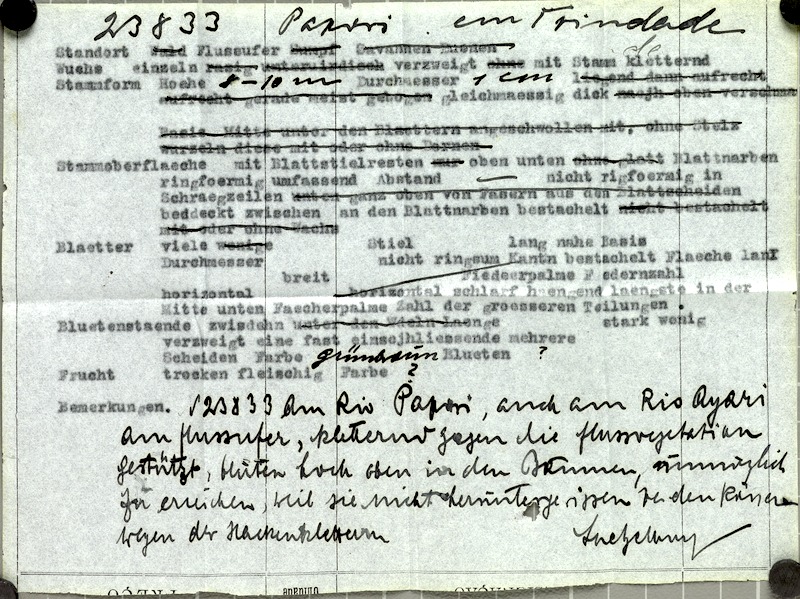 23833 Papori em Trindade
Standort Wald Flussufer Sumpf Savannen Buenen
Wuchs einzeln rasig unterirdisch verzweigt ohne mit Stamm kletternd
Stammform Hoehe 8-10 m Durchmesser 1 cm liegend dann aufrecht
aufrecht gerade meist gebogen gleichmaessig dick nacjh oben verschma
Basis Mitte unter den Blaettern angeschwollen mit, ohne Stelz
wurzeln diese mit oder ohne Dornen
Stammoberflaeche mit Blattstielresten nur oben unten ohne glatt Blattnarben
ringfoermig umfassend Abstand nicht rigfoermig in
Schraegzeilen unten ganz oben von Fasern aus den Blattscheiden
beddeckt zwischen an den Blattnarben bestachelt nicht bestachelt
mit oder ohne Wachs
Blaetter viele wenige Stiel lang nahe Basis
Durchmesser nicht ringsum Kantn bestachelt Flaeche lang
breit Fiederpalme F edernzahl
horizontal horizontal schlarf haengend laengste in der
Mitte unten Fascherpalme Zahl der groesseren Teilungen .
Bluetenstaende zwisdehn unter den Wdeln Laenge stark wenig
verzweigt eine fast einscjhliessende mehrere
Scheiden Farbe grünbraun Blueten ?
Frucht trocken fleischig Farbe ?
Bemerkungen. 23833 Am Rio Papori, auch am Rio Ayari
am flussufer, kletternd gegen die flussvegetation
gestützt, blüten hoch oben in den Bäumen, unmöglich
zu erreichen, weil sie nicht heruntergerissen werden können
wegen der Hackenkletterern